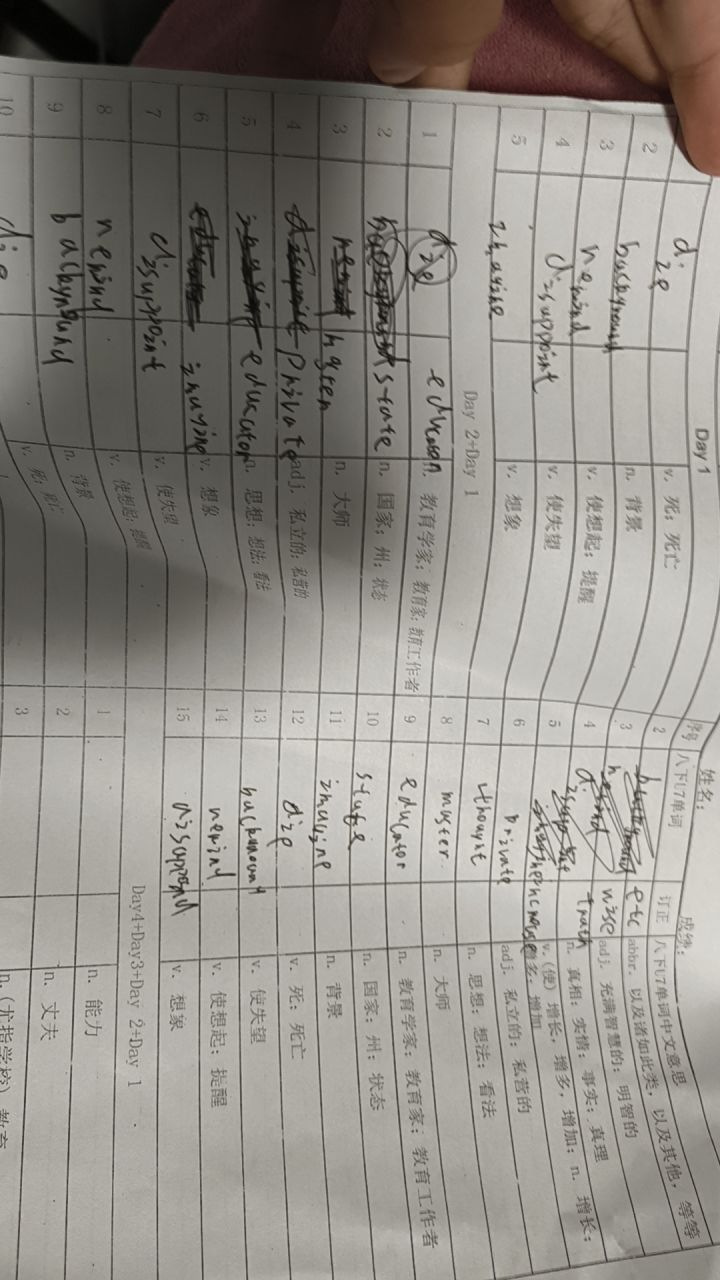 Day 1
2 die v. 死；死亡
3 background n. 背景
4 remind v. 使想起；提醒
5 disappoint v. 使失望
v. 想象
Day 2+Day 1
1 die n. 教育学家；教育家；教育工作者
2 state n. 国家；州；状态
3 n. 大师
4 private adj. 私立的；私营的
5 educator n. 思想；想法；看法
6 v. 想象
7 v. 使失望
8 v. 使想起；提醒
9 n. 背景
10 die v. 死；死亡
姓名： 成绩：
序号 八下U7单词 订正 八下U7单词中文意思
2 etc abbr. 以及诸如此类，以及其他，等等
3 wise adj. 充满智慧的；明智的
4 truth n. 真相；实情；事实；真理
5 v. (使) 增长，增多，增加；n. 增长；增多；增加
6 private adj. 私立的；私营的
7 thought n. 思想；想法；看法
8 master n. 大师
9 educator n. 教育学家；教育家；教育工作者
10 state n. 国家；州；状态
11 imagine n. 背景
12 die v. 死；死亡
13 v. 使失望
14 remind v. 使想起；提醒
15 v. 想象
Day4+Day3+Day 2+Day 1
1 n. 能力
2 n. 丈夫
3 n. (尤指学校) 教育